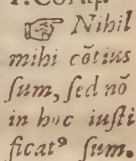 ☞ Nihil
mihi cõtius
ſum, ſed nõ
in hoc iuſti
ficatꝰ ſum.